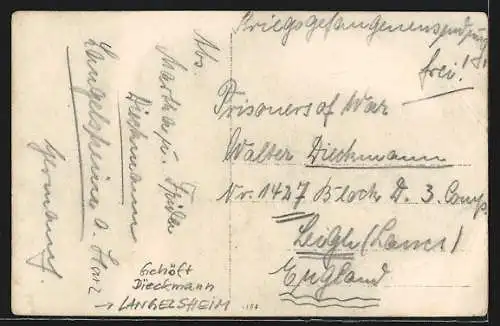 Kriegsgefangenensendung
frei!
Prisoners of War
Walter Dieckmann
Nr. 1427 Block D. 3. Comp.
Leigh (Lancs)
England
Abs.
Martha u.
Dieckmann
Langelsheim a. Harz
Germany.
Gehöft
Dieckmann
→ LANGELSHEIM